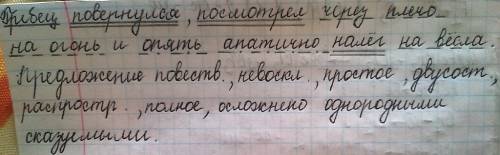 Гребец повернулся, посмотрел через плечо
на огонь и опять апатично налёг на вёсла.
Предложение повеств., невоскл., простое, двусост.,
распростр., полное, осложнено однородными
сказуемыми.